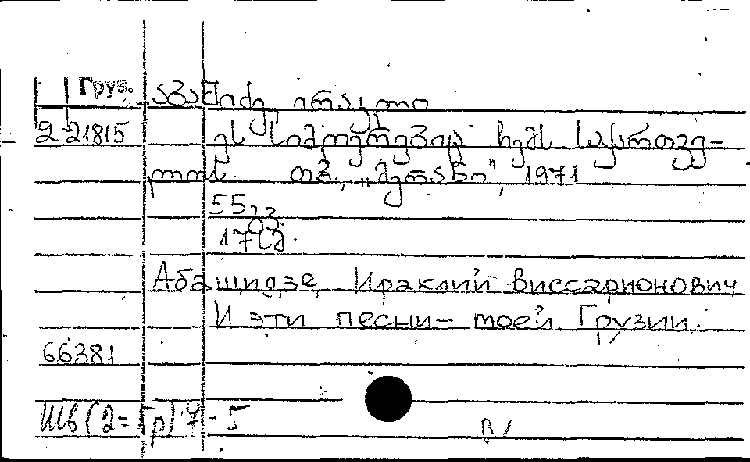 Груз. აბაშიძე, ირაკლი
2-21815 ეს სიმღერებიც ჩემს საქართვე-
ლოს. თბ., „მერანი", 1971
55 გვ.
17 სმ.
Абашидзе, Ираклий Виссарионович
И эти песни- моей Грузии.
66381
Шв(2=Гр)7-5